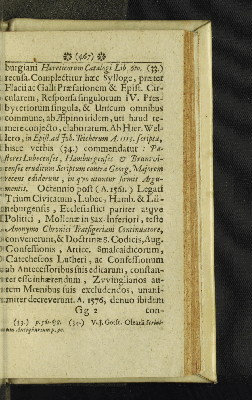 (467)
burgiani Hæreticorum Catalogi Lib. &c. (33.)
recusa. Complectitur hæc Sylloge, præter
Flacii ac Galli Præfationem & Epist. Cir-
cularem, Responsa singulorum IV. Pres-
byteriorum singula, & Unicum omnibus
commune, ab Æpino itidem, uti haud te-
mere conjecto, elaboratum. Ab Hier. Wel-
lero, in Epist. ad Scripta,
hisce verbis (34.) commendatur: Pa-
stores Lubecenses, Hamburgenses & Brunsvi-
censes eruditum Scriptum contra Georg. Majorem
recens ediderunt, in quo utuntur Argu-
mentis. Octennio post (A. 1561.) Legati
Trium Civitatum, Lubec, Hamb. & Lü-
neburgensis, Ecclesiastici pariter atque
Politici, Mollenæ in Sax. Inferiori, teste
Anonymo Chronici Continuatore,
convenerunt, & Doctrinæ S. Codicis, Aug.
Confessionis, Articc. Smalcaldicorum,
Catecheseos Lutheri, ac Confessionum
ab Antecessoribus suis editarum, constan-
ter esse inhærendum, Zvvinglianos au-
tem Mœnibus suis excludendos, unani-
miter decreverunt. A. 1576, denuo ibidem
Gg 2 con-
(33.) p. (34.) V. J. Gottf. Olearii Scrinium